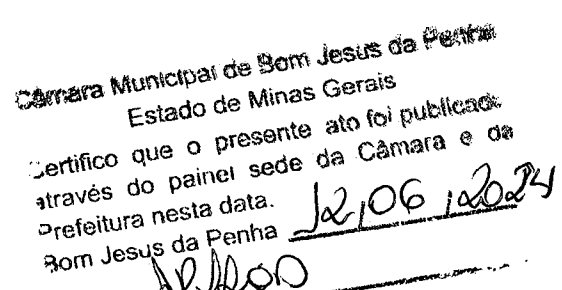 Câmara Municipal de Bom Jesus da Penha
Estado de Minas Gerais
Certifico que o presente ato foi publicado
através do painel sede da Câmara e da
Prefeitura nesta data.
Bom Jesus da Penha 12,06,2024